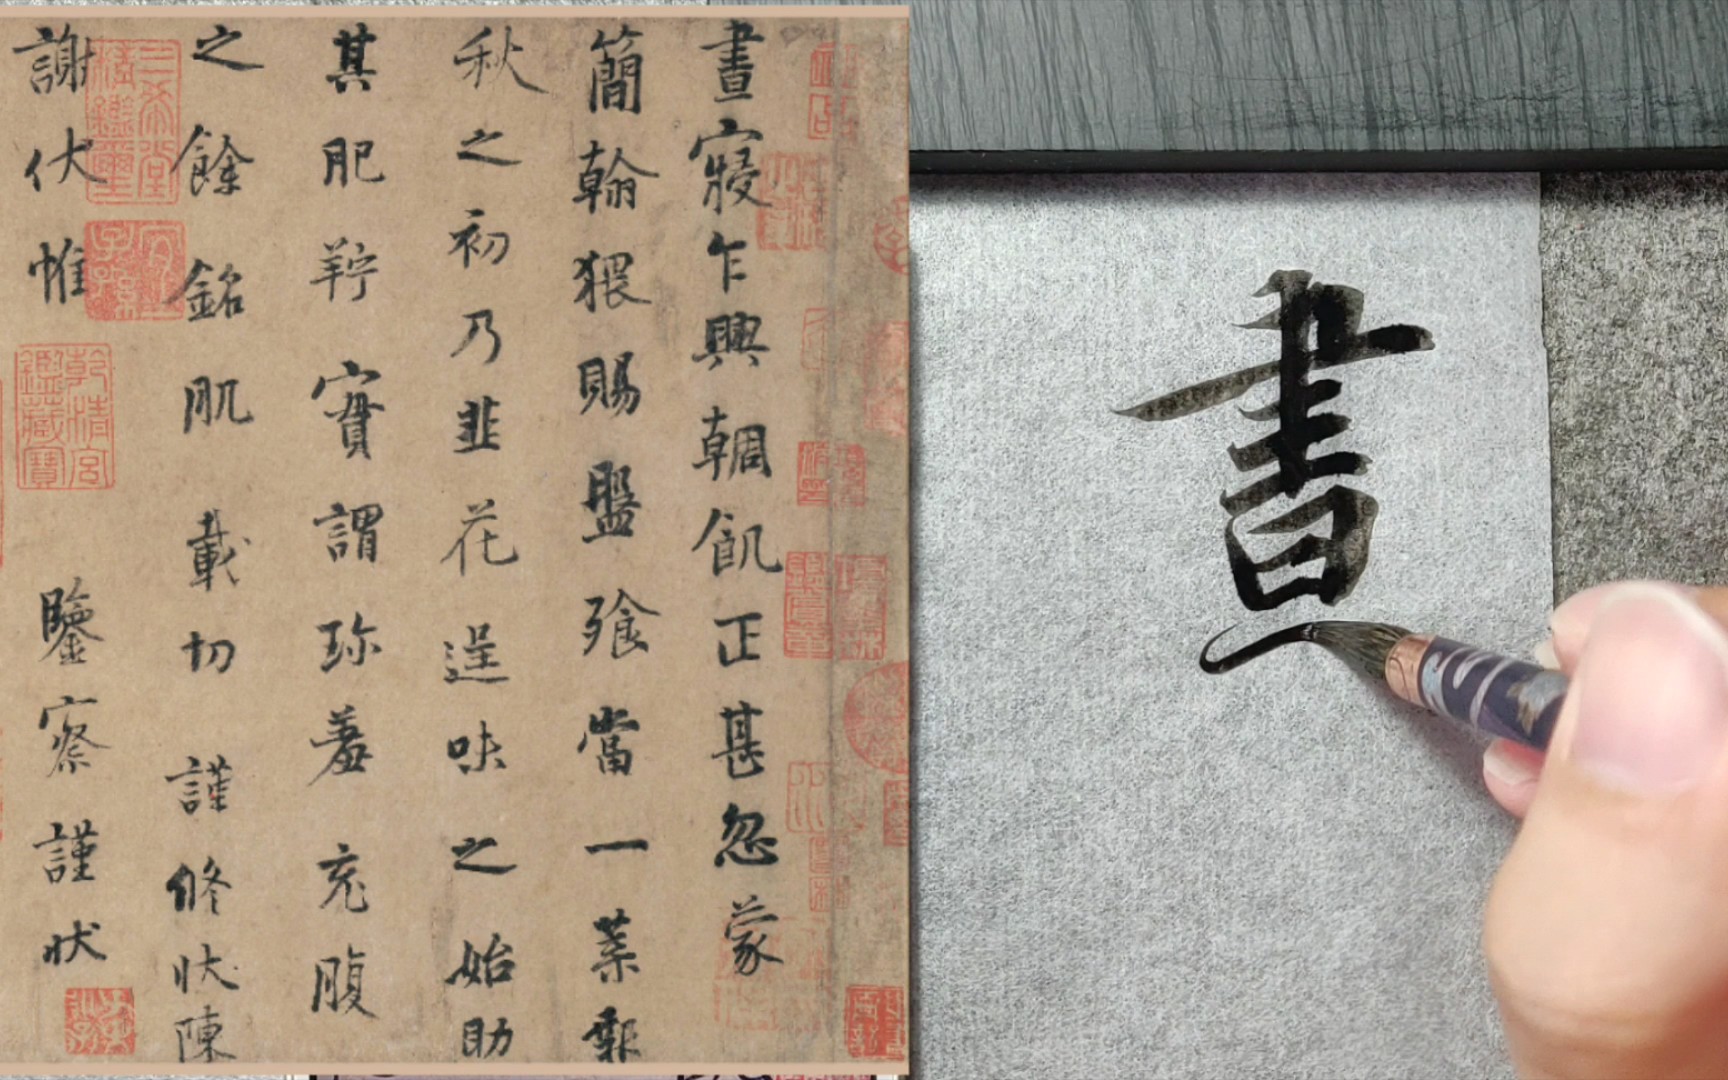 晝寢乍興輖飢正甚忽蒙
簡翰猥賜盤飧當一葉報
秋之初乃韭花逞味之始助
其肥羜實謂珍羞充腹
之餘銘肌載切謹修狀陳
謝伏惟
鑒察謹狀
三希堂精鑑璽
宜子孫
乾清宮鑑藏寶
晝